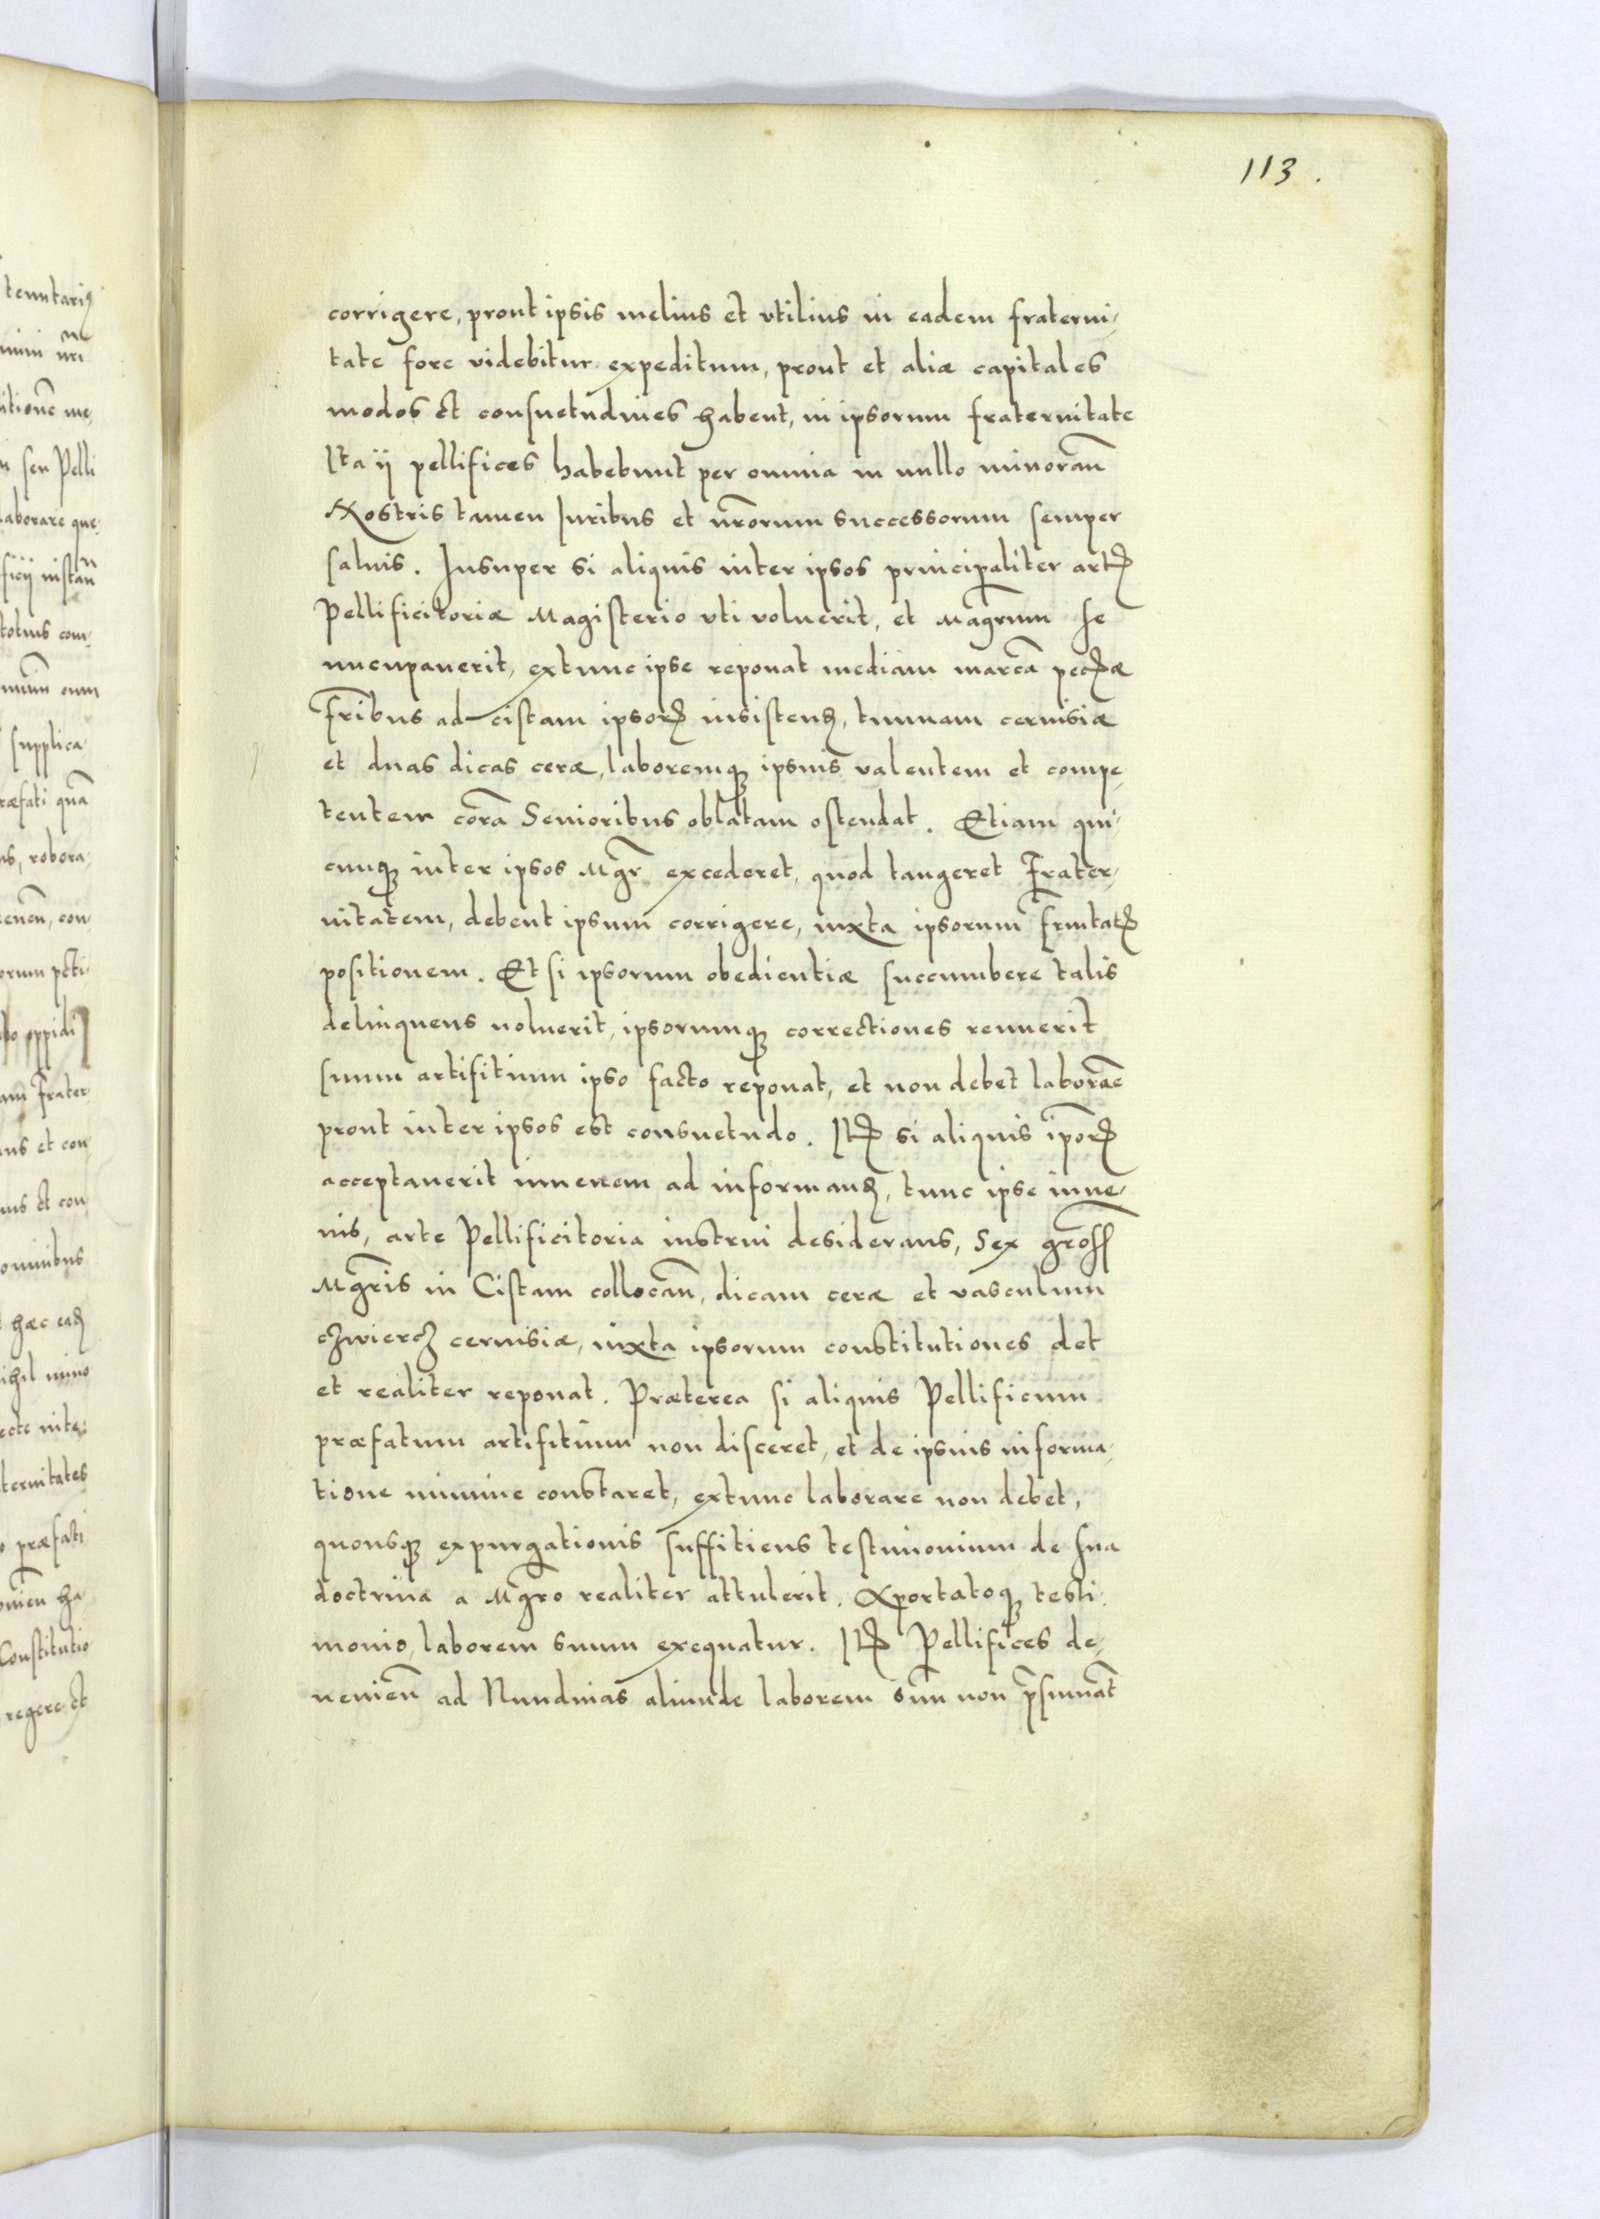 113.
corrigere, prout ipsis melius et vtilius in eadem fraterni-
tate fore videbitur expeditum, prout et aliæ capitales
modos et consuetudines habent, in ipsorum fraternitate
Ita ij pellifices habebunt per omnia in nullo minorañ
Nostris tamen Iuribus et nr̃orum successorum semper
saluis. Insuper si aliquis inter ipsos principaliter artꝭ
Pellificitoriæ Magisterio vti voluerit, et Mag̃rum se
nucupauerit, extunc ipse reponat mediam marcã pecꝭæ
fr̃ibus ad cistam ipsorꝭ insistenꝭ, tunnam ceruisiæ
et duas dicas ceræ, laboremqꝫ ipsius valentem et compe-
tentem corã Senioribus oblatam ostendat. Etiam qui-
cunqꝫ inter ipsos Mgr̃ excederet, quod tangeret Frater-
nitatem, debent ipsum corrigere, iuxta ipsorum fr̃nitatꝭ
positionem. Et si ipsorum obedientiæ succumbere talis
delinquens noluerit, ipsorumqꝫ correctiones renuerit
suum artifitium ipso facto reponat, et non debet laborãe
prout inter ipsos est consuetudo. Itꝭ si aliquis ip̃orꝭ
acceptauerit iuuenem ad informanꝭ, tunc ipse iuue-
nis, arte Pellificitoria instrui desiderans, Sex gross
Mgr̃is in Cistam collocañ, dicam ceræ et vasculum
czwiercz ceruisiæ, iuxta ipsorum constitutiones det
et realiter reponat. Præterea si aliquis Pellificum
præfatum artifitium non disceret, et de ipsius informa-
tione minime constaret, extunc laborare non debet,
quousqꝫ expurgationis suffitiens testimonium de sua
doctrina a Mgr̃o realiter attulerit. Apportatoqꝫ testi-
monio, laborem suum exequatur. Itꝭ Pellifices de-
nenieñ ad Nundinas aliunde laborem sũm non p̃sumãt